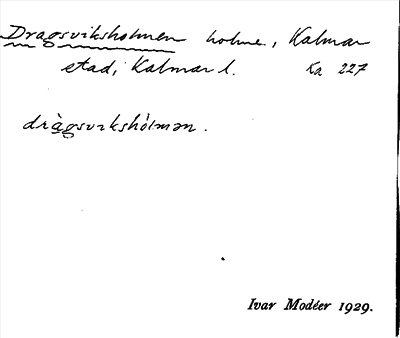 Dragsviksholmen holme, Kalmar
stad, Kalmar l. Ka 227
dràgsvɩkshòlmən.
Ivar Modéer 1929.